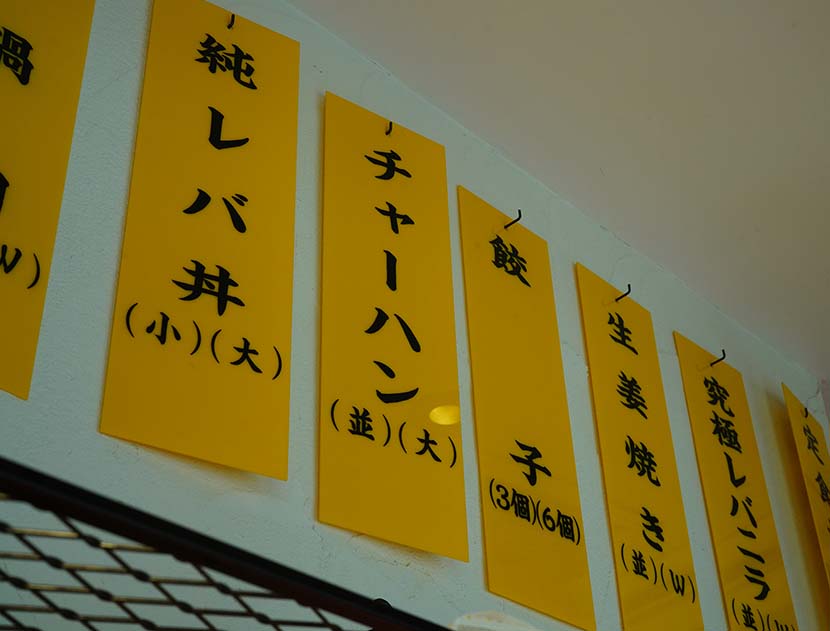 鍋
(W)
純レバ丼
(小)(大)
チャーハン
(並)(大)
餃子
(3個)(6個)
生姜焼き
(並)(W)
究極レバニラ
(並)(W)
定食